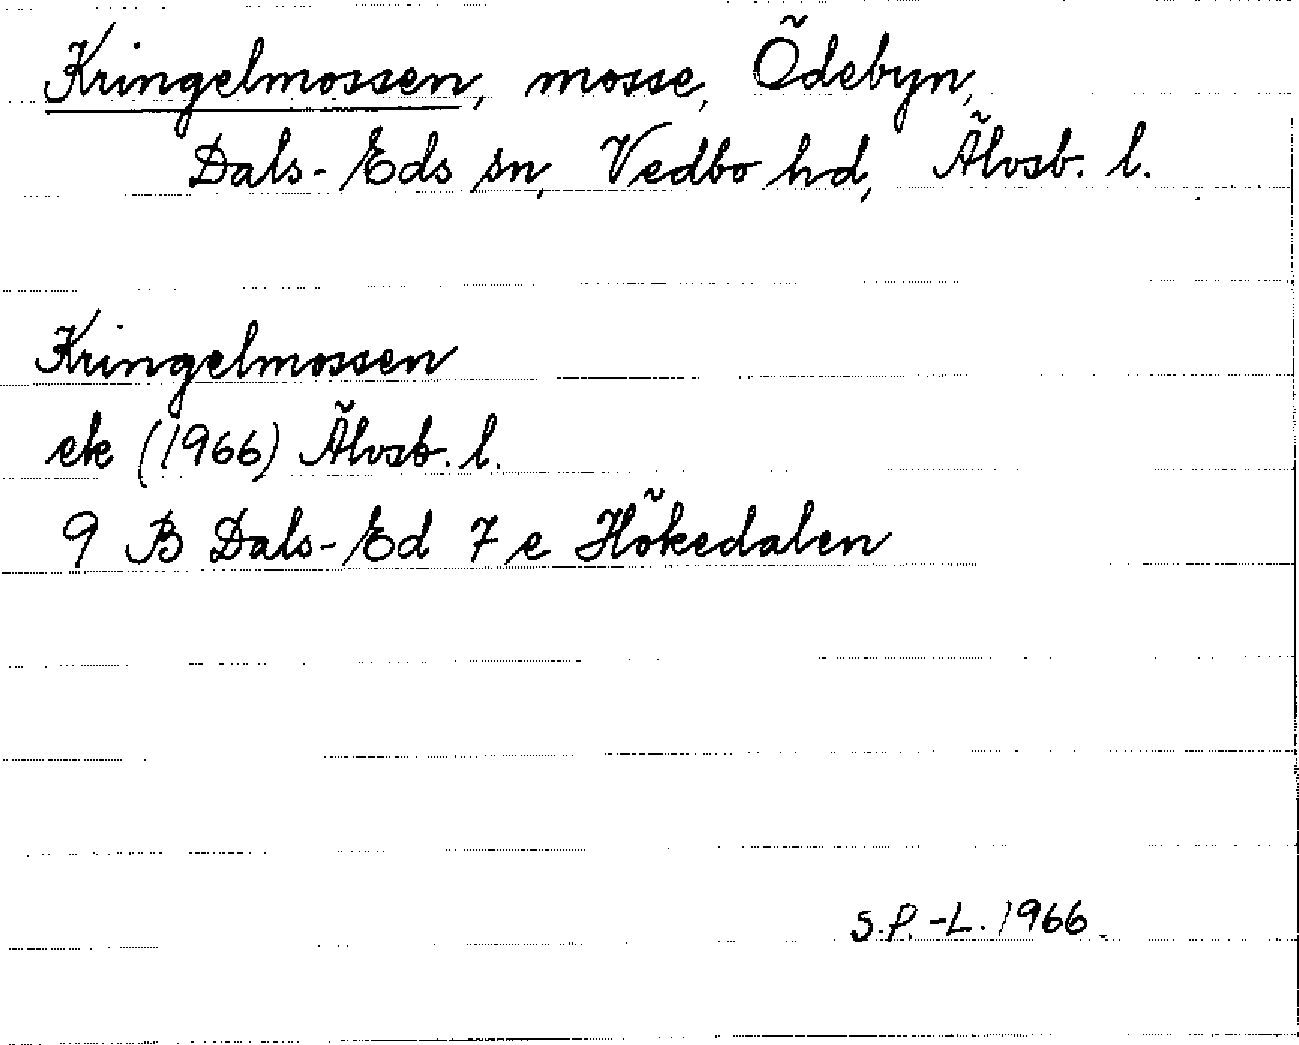 Kringelmossen, mosse, Ödebyn,
Dals-Eds sn, Vedbo hd, Älvsb. l.
Kringelmossen
ek (1966) Älvsb. l.
9 B Dals-Ed 7 e Hökedalen
S.P.-L. 1966.